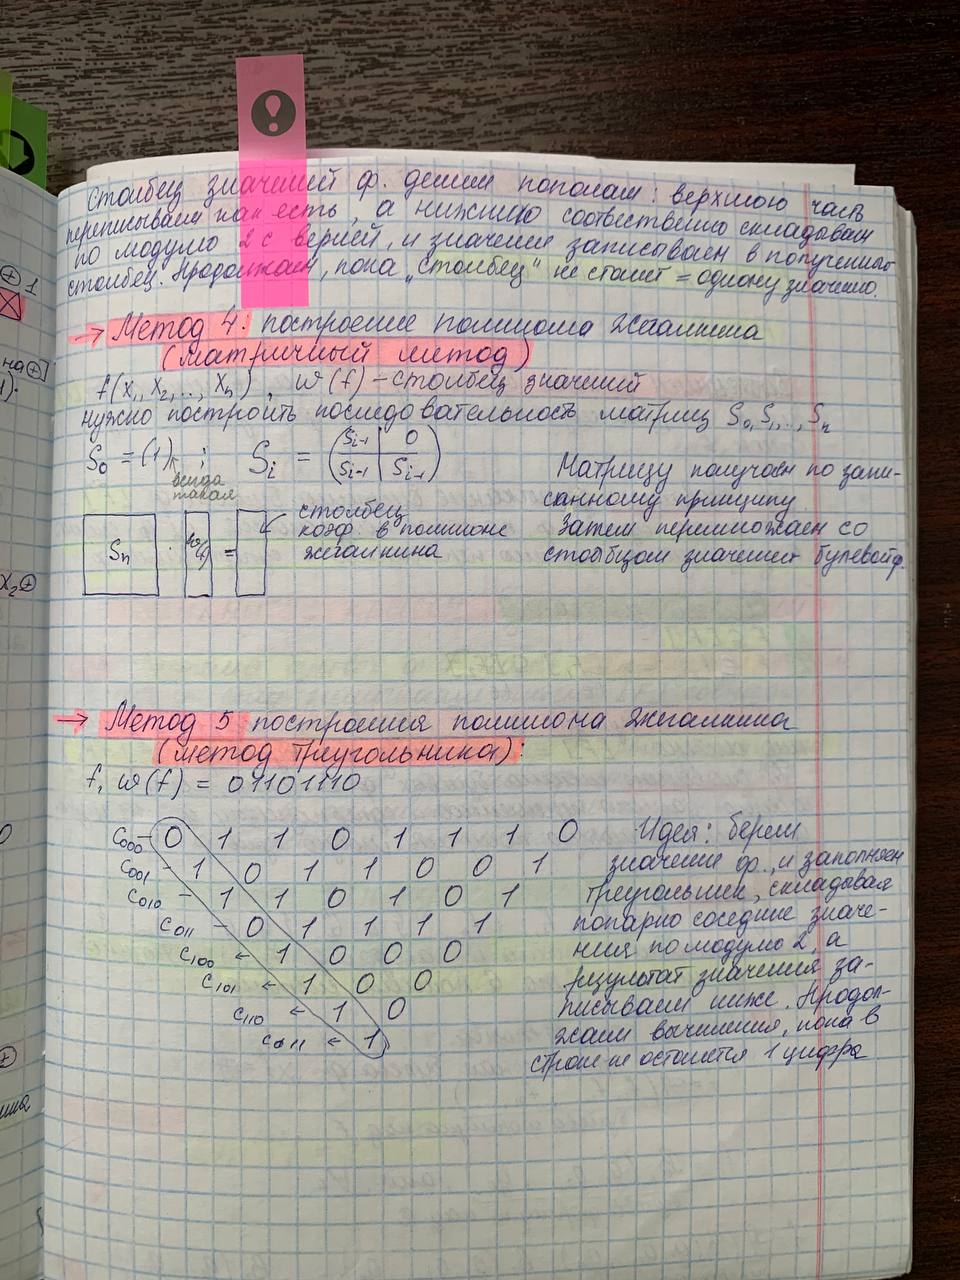 столбец значений ф. делим пополам: верхнюю часть
переписываем как есть, а нижнюю соотвественно складываем
по модулю 2 с верней, и значения записываем в полученный
столбец. Продолжаем, пока „столбец" не станет = одному значению.
→ Метод 4: построение полинома Жегалкина
(матричный метод)
f(x₁, x₂, .., xₙ), w(f) – столбец значений
нужно построить последовательность матриц S₀, S₁, .., Sₙ
S₀ = (1) ; Sᵢ = (Sᵢ₋₁ | 0
Sᵢ₋₁ | Sᵢ₋₁)
всегда
такая
Матрицу получаем по запи-
санному принципу.
Затем перемножаем со
столбцом значений булевой ф.
Sₙ · w(f) =
столбец
коэф. в полиноме
жегалкина
→ Метод 5 построения полинома Жегалкина
(метод Треугольника):
f, w(f) = 01101110
C₀₀₀ – 0 1 1 0 1 1 1 0
C₀₀₁ – 1 0 1 1 0 0 1
C₀₁₀ – 1 1 0 1 0 1
C₀₁₁ – 0 1 1 1 1
C₁₀₀ ← 1 0 0 0
C₁₀₁ ← 1 0 0
C₁₁₀ ← 1 0
C₀₁₁ ← 1
Идея: берем
значение ф., и заполняем
треугольник, складывая
попарно соседние значе-
ния по модулю 2, а
результат значения за-
писываем ниже. Продол-
жаем вычисления, пока в
строке не останется 1 цифра
⊕ 1
на ⊕]
x₂ ⊕